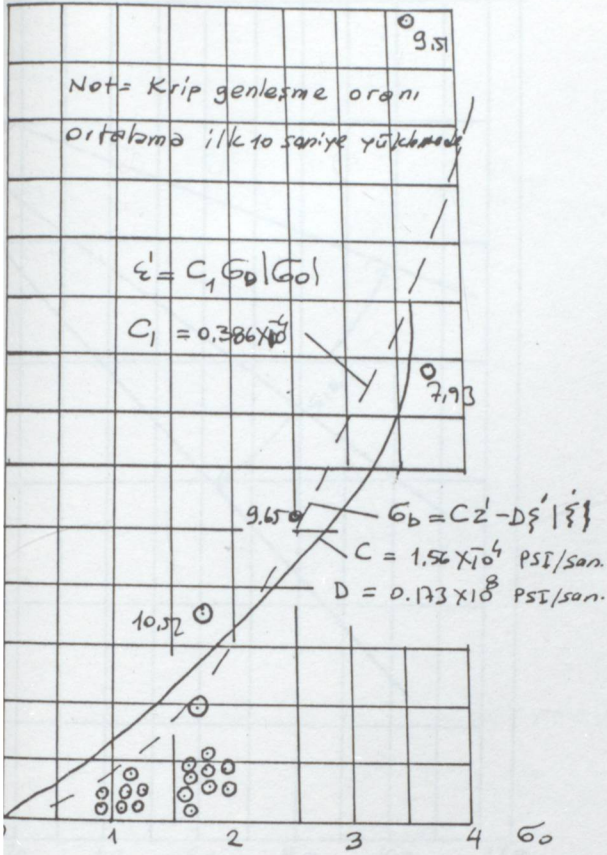 9.51
Not= Krip genleşme oranı
ortalama ilk 10 saniye yüklemede
ε' = C₁ σD |σ0|
C₁ = 0.386x10⁻⁴
7.93
9.65
σb = Cε' - Dε' |ε'|
C = 1.56 x10⁴ PSI/san.
D = 0.173 x10⁸ PSI/san.
10.52
1 2 3 4 σ0